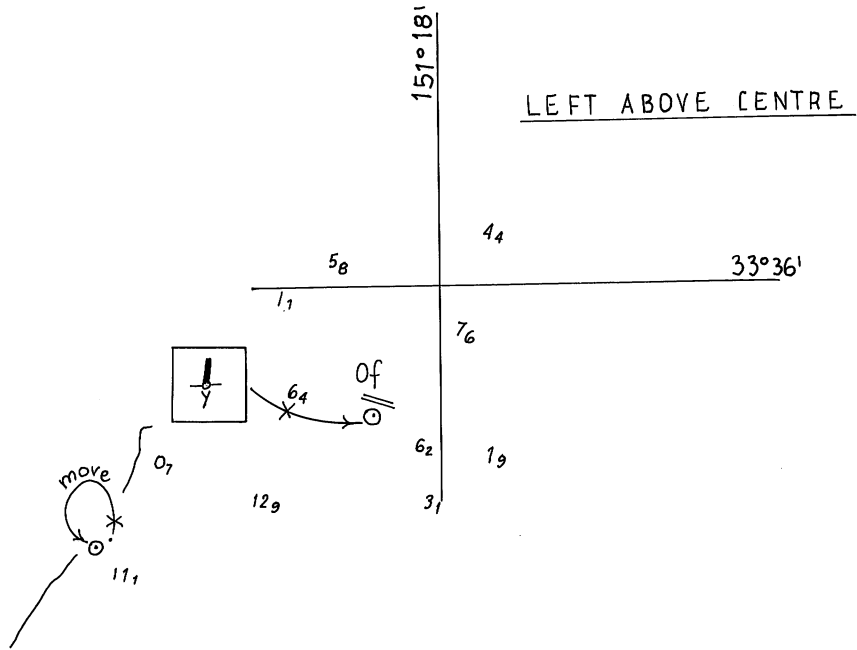 151°18'
LEFT ABOVE CENTRE
4₄
5₈
33°36'
1₁
7₆
Of
6₄
Y
6₂
1₉
0₇
move
12₉
3₁
11₁